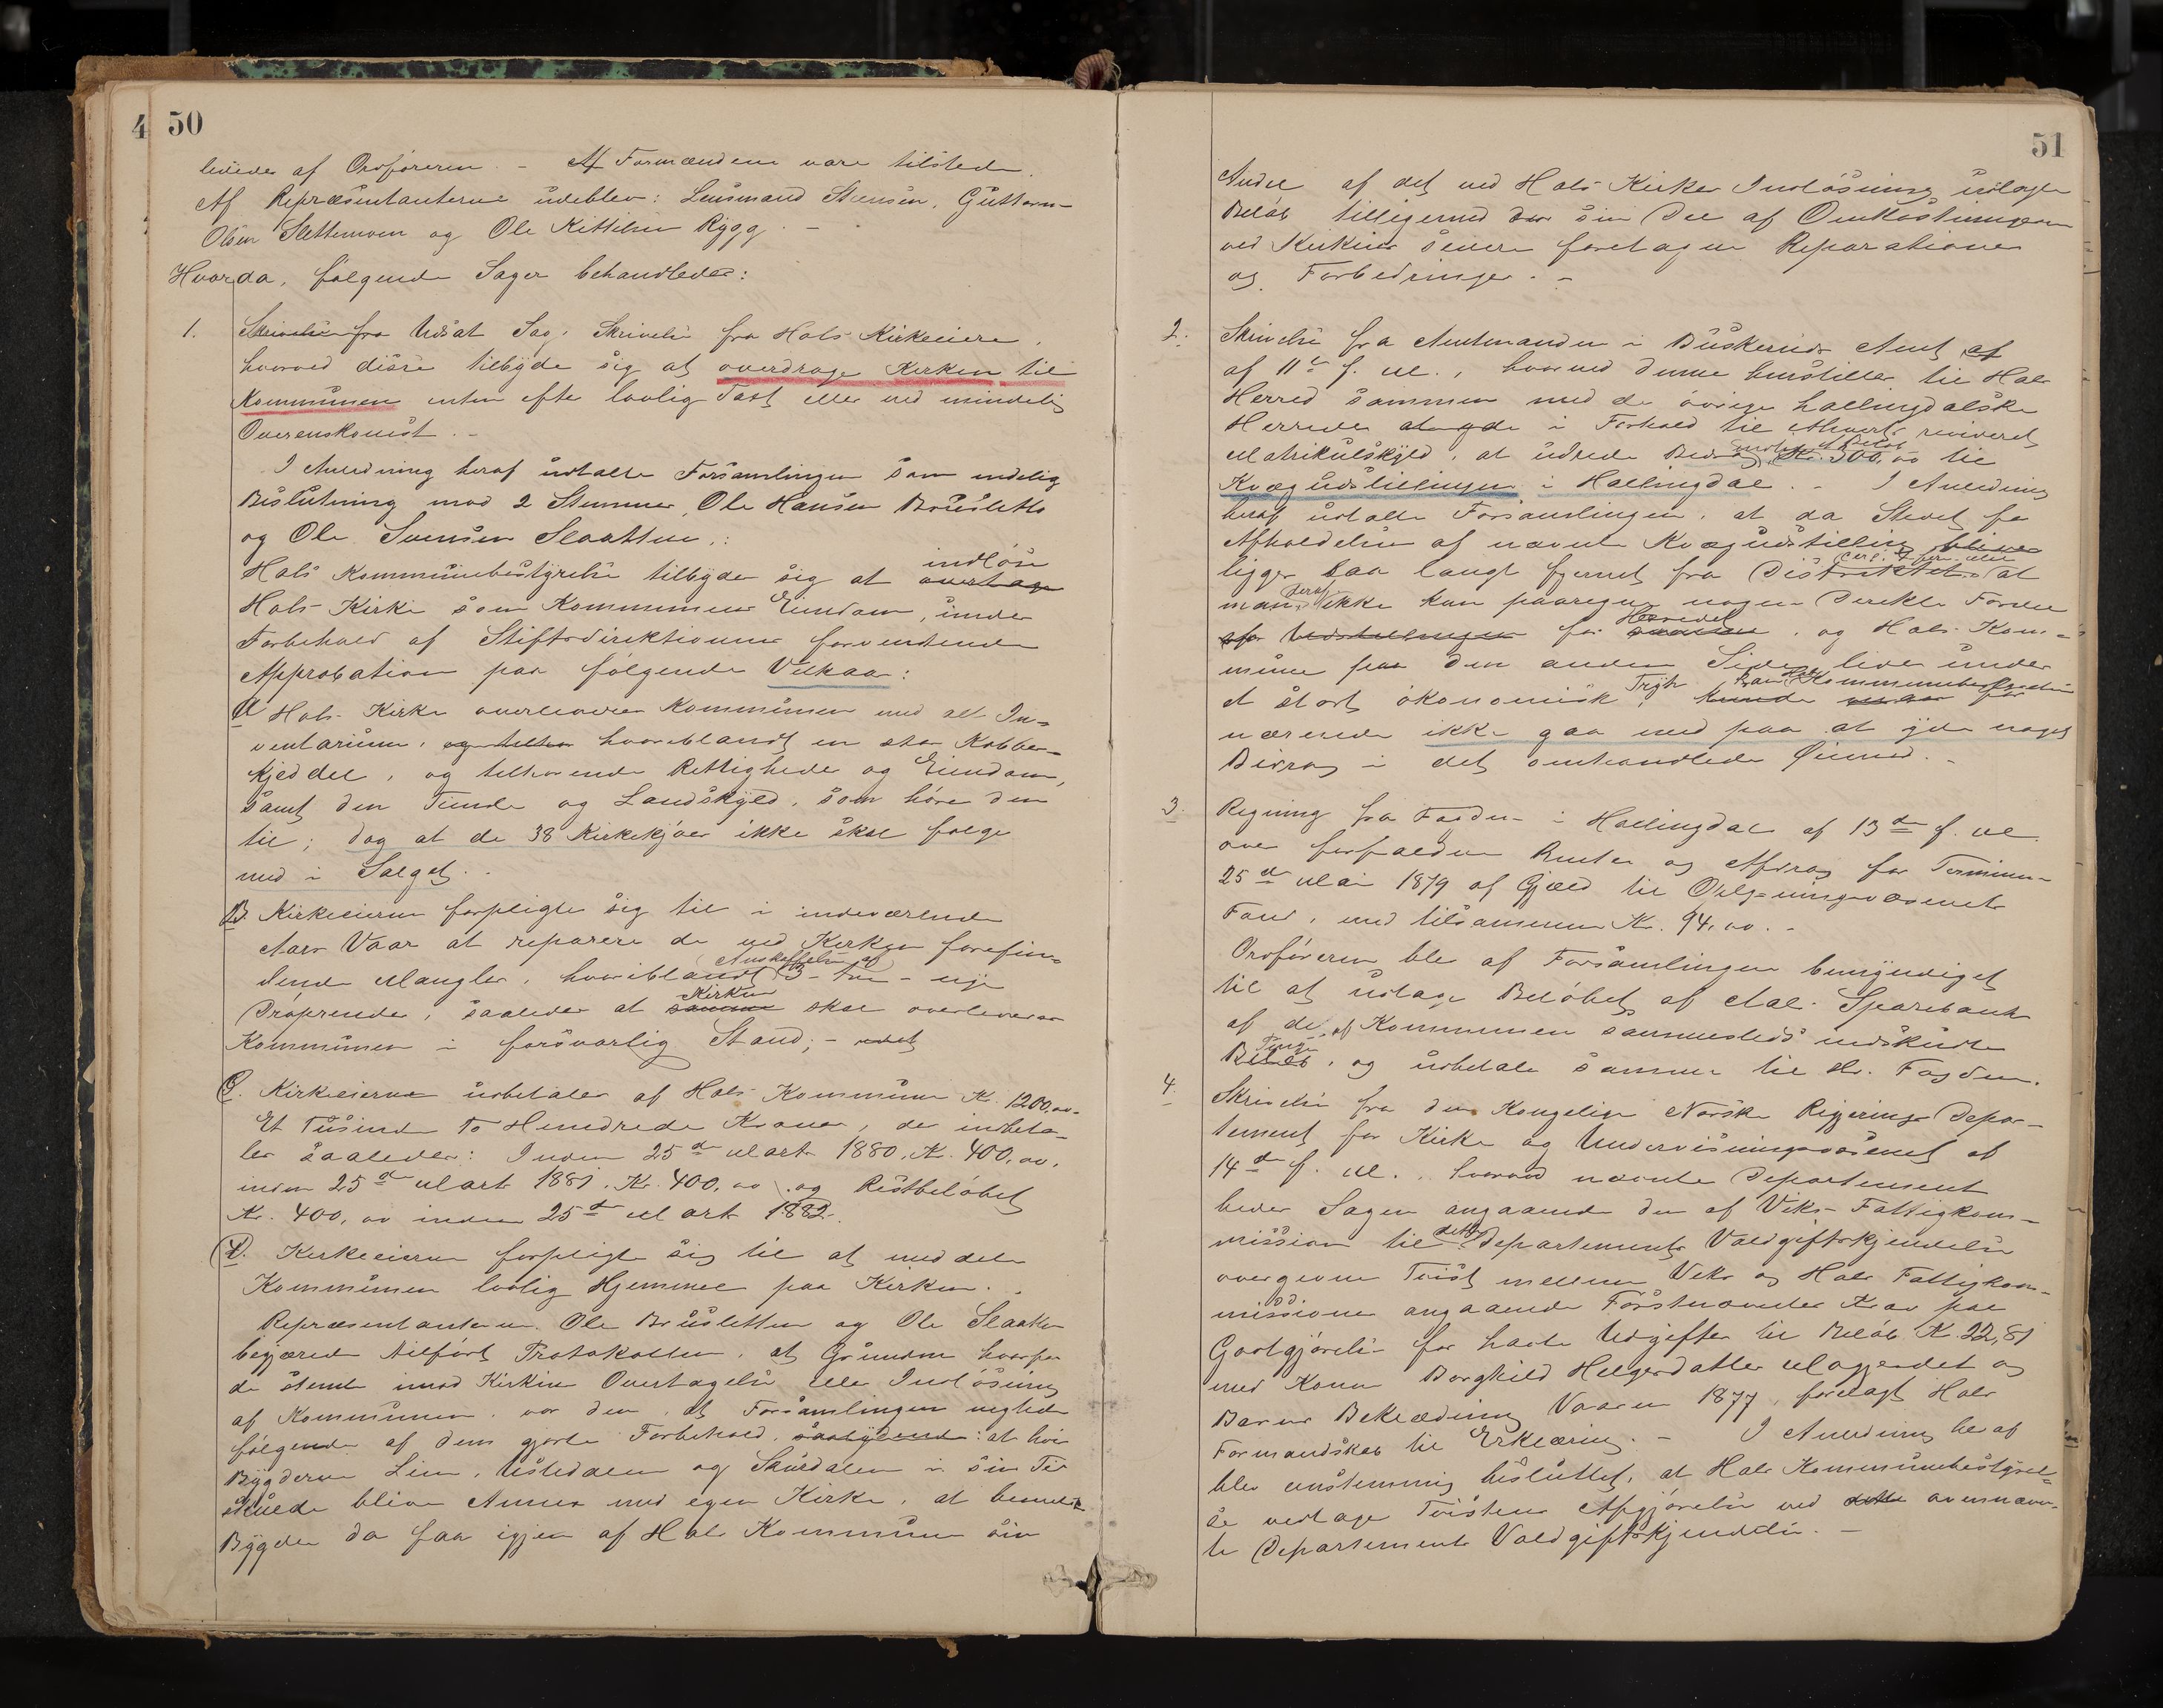 4 50
ledede af Ordføreren. - Af Formændene vare tilstede.
Af Repræsentanterne udeblev: Lensmand Svensen, Guttorm
Olsen Slettemoen og Ole Kittilsen Rygg. -
Hvorda, følgende Sager behandledes:
1. Skrivelse fra Udsat Sag: Skrivelse fra Hols Kirkeeiere,
hvorved disse tilbyde sig at overdrage Kirken til
Kommunen enten efter lovlig Taxt eller ved mindelig
Overenskomst. -
I Anledning heraf udtalte Forsamlingen som endelig
Beslutning mod 2 Stemmer, Ole Hansen Brusletto
og Ole Svensen Slaatten,:
Hols Kommunebestyrelse tilbyder sig at overtage indløse
Hols Kirke som Kommunens Eiendom, under
Forbehold af Stiftsdirektionens forventende
Approbation paa følgende Vilkaar:
A Hols Kirke overleveres Kommunen med alt In-
ventarium, og tilhø hvoriblandt en stor Kobber-
kjeddel, og tilhørende Rettigheder og Eiendom,
samt den Tiende og Landskyld, som hører den
til; dog at de 38 Kirkekjøer ikke skal følge
med i Salget. -
B. Kirkeeierne forpligte sig til i indeværende
Aars Vaar at reparere de ved Kirken forefin-
dende Mangler, hvoriblandt Anskaffelsen af 3 - tre - nye
Drøprender, saaledes at samme Kirken skal overleveres
Kommunen i forsvarlig Stand; -
C. Kirkeeierne udbetales af Hols Kommune Kr. 1200,00-
Et Tusinde To Hundrede Kroner, der indbeta-
les saaledes: Inden 25de Marts 1880, Kr. 400,00,
inden 25de Marts 1881, Kr. 400,00, og Restbeløbet
Kr. 400,00 inden 25de Marts 1882.
D. Kirkeeierne forpligte sig til at meddele
Kommunen lovlig Hjemmel paa Kirken. -
Repræsentanterne Ole Brusletten og Ole Slaatten
begjærede tilført Protokollen, at Grunden hvorfor
de stemte imod Kirkens Overtagelse eller Indløsning
af Kommunen, var den, at Forsamlingen negtede
følgende af dem gjorte Forbehold, saalydende: at hvis
Bygderne Lien, Ustedalen og Skurdalen i sin Tid
skulde blive Annex med egen Kirke, at bemeldte
Bygder da faa igjen af Hols Kommune sin
51
Andel af det ved Hols Kirkes Indløsning udlagte
Beløb tilligemed sin Del af Omkostningerne
ved Kirkens senere foretagne Reparationer
og Forbedringer. -
2. Skrivelse fra Amtmanden i Buskeruds Amt af
af 11te f. M., hvorved denne henstiller til Hols
Herred sammen med de øvrige hallingdalske
Herreder i Forhold til revideret
Matrikulskyld, at udrede Bidrag indtil et Beløb Kr. 300,00 til
Kvægudstillingen i Hallingdal. - I Anledning
heraf udtalte Forsamlingen, at da Stedet for
Afholdelsen af nævnte Kvægudstilling bliver
ligger saa langt fjernet fra Distriktet at
man deraf ikke kan paaregne nogen Direkte Fordel
af Udstillingen for Herredet, og Hols Kom-
mune paa den anden Side lider under
et stort økonomisk Tryk, kan Kommunebestyrelsen for
nærværende ikke gaa med paa at yde noget
Bidrag i det omhandlede Øiemed. -
3. Regning fra Fogden i Hallingdal af 13de f. M.
over forfaldne Renter og Afdrag for Terminen
25de Mai 1879 af Gjæld til Oplysningsvæsenets
Fond, med tilsammen Kr. 94,00. -
Ordføreren blev af Forsamlingen bemyndiget
til at udtage Beløbet af Aals Sparebank
af de af Kommunen sammesteds indskudte
Beløb Penge, og udbetale samme til Hr. Fogden.
4. Skrivelse fra den Kongelige Norske Regjerings Depar-
tement for Kirke og Undervisningsvæsenet af
14de f. M., hvorved nævnte Departement
beder Sagen angaaende den af Viks Fattigkom-
mission til dette Departements Voldgiftskjendelse
overgivne Tvist mellem Viks og Hols Fattigkom-
missioner angaaende Førstnævntes Krav paa
Godtgjørelse for havte Udgifter til Beløb Kr. 22,81
med Konen Borghild Helgesdatter Mogjerdet og
Barns Beklædning Vaaren 1877, forelagt Hols
Formandskab til Erklæring. - I Anledning heraf
blev enstemmig besluttet, at Hols Kommunebestyrel-
se vedtager Tvistens Afgjørelse ved dette ovennævn-
te Departements Voldgiftskjendelse. -